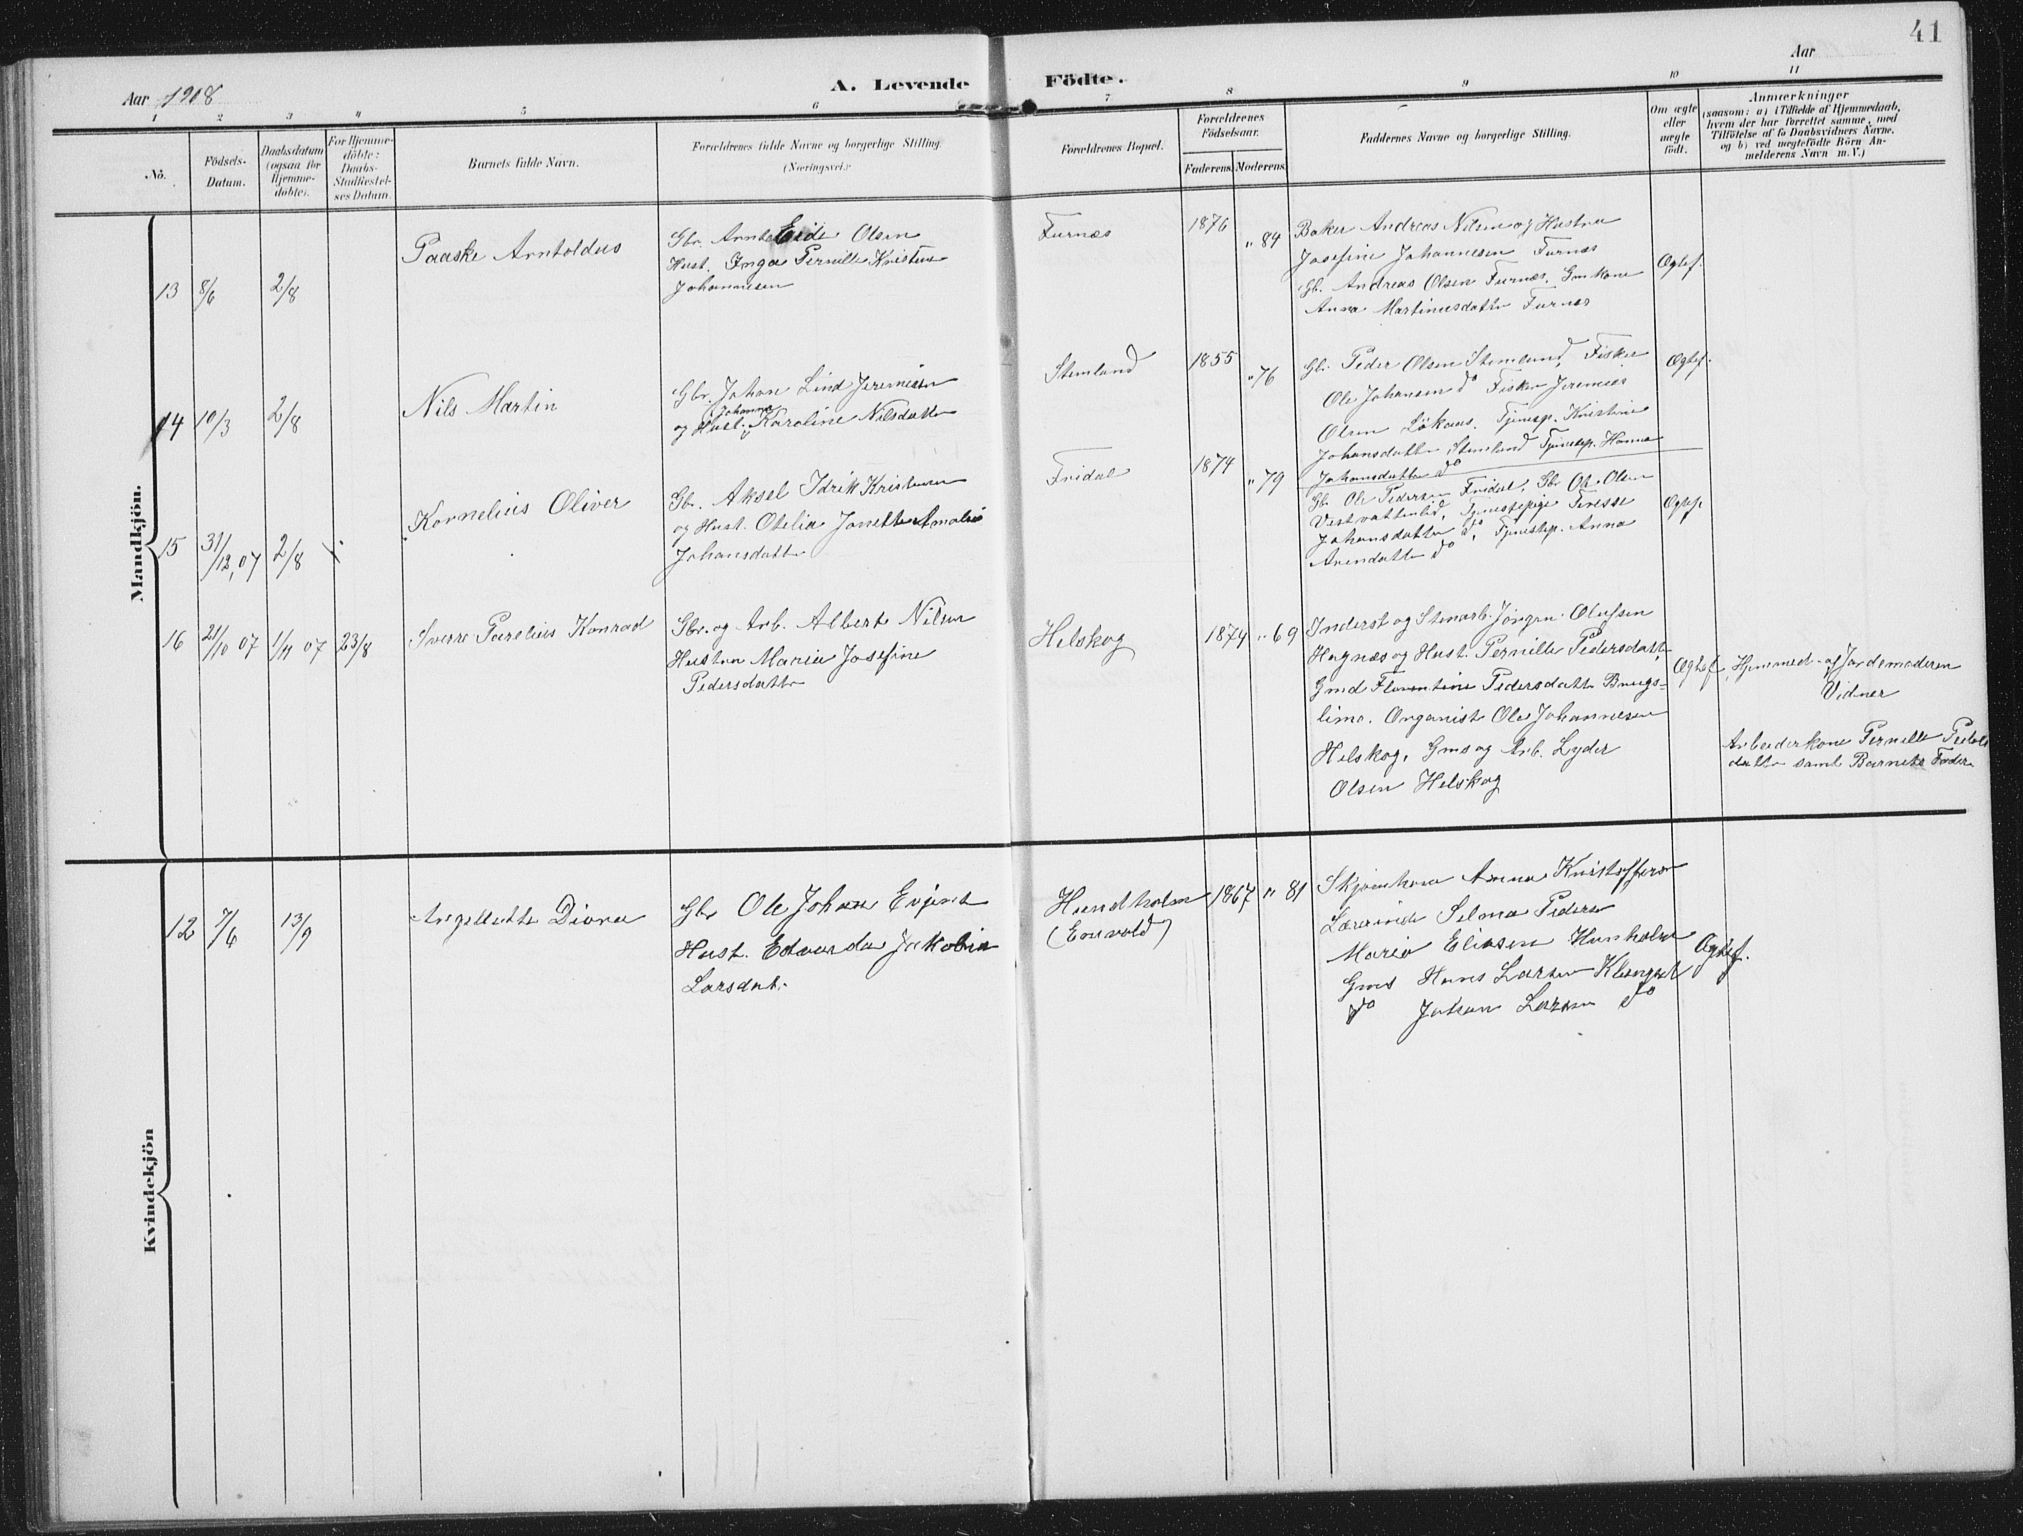 41
Aar 1908
A. Levende Födte.
Aar
1 2 3 4 5 6 7 8 9 10 11
No.
Födsels-
Datum.
Daabsdatum
(ogsaa for
Hjemme-
döbte).
For Hjemme-
döbte:
Daabs-
Stadfæstel-
ses Datum.
Barnets fulde Navn.
Forældrenes fulde Navne og borgerlige Stilling.
(Næringsvei.)
Forældrenes Bopæl.
Forældrenes
Födselsaar.
Faderens. Moderens.
Faddernes Navne og borgerlige Stilling.
Om ægte
eller
uægte
födt.
Anmærkninger
(saasom: a) i Tilfælde af Hjemmedaab,
hvem der har forrettet samme, med
Tilföielse af to Daabsvidners Navne,
og b) ved uægtefödte Börn An-
melderens Navn m. V.)
Mandkjön.
13 8/6 2/8
Paaske Arntoldus
Gbr. Eide Olsen
Hust. Inga Pernille Kristine
Johannesen
Furnæs
1876 " 84
Baker Andreas Nilsen og Hustru
Josefine Johannesen Furnæs
Gb. Andreas Olsen Furnæs, Gmkone
Anna Martinusdatter Furnæs
Ogtef.
14 10/3 2/8
Nils Martin
Gbr. Johan Lind Jeremisen
Johanna
og Hust. Karoline Nilsdatter
Stemland
1855 " 76
Gb. Peder Olsen Stemland, Fisker
Ole Johansen do Fisker Jeremias
Olsen Lökaas. Tjenesp. Kristine
Johansdatter Stemland Tjenesp. Hanna
Johansdatter do
Ogtef.
15 31/12, 07 2/8
Kornelius Oliver
Gbr. Aksel Idrik Kristensen
og Hust. Otelia Jonette Amalie
Johansdatter
Fridal
1874 " 79
Gb. Ole Pedersen Fridal, Gb Ole Olsen
Vestvattenlid, Tjenestepige Terese
Johansdatter do, Tjenestep. Anna
Arendatter do
Ogtef.
16 21/10 07 1/11 07 23/8
Sverre Parelius Konrad
Gbr. og Arb. Albert Nilsen
Hustru Maria Josefine
Pedersdatter
Helskog
1874 " 69
Inderst og Stenarb. Jörgen Olufsen
Hagnæs og Hust. Pernille Pedersdatt,
Gmd Florentine Pedersdatter Brugs-
limo. Organist Ole Johannesen
Helskog, Gms og Arb. Lyder
Olsen Helskog
Ogtef.
Hjemmed. af Jordemoderen
Vidner
Arbeiderkone Pernille Peders
datter samt Barnets Fader
Kvindekjön
12 7/6 13/9
Angelette Diora
Gbr Ole Johan Evjent
Hust. Edvarda Jakobine
Larsdat.
Hundholm
(Enevold)
1867 " 81
Anna Kristoffersen
Lærerinde Selma Peders
Marie Eliasen Hunholm
Gms Hans Larsen Klungset
do Johan Larsen do
Ogtef.